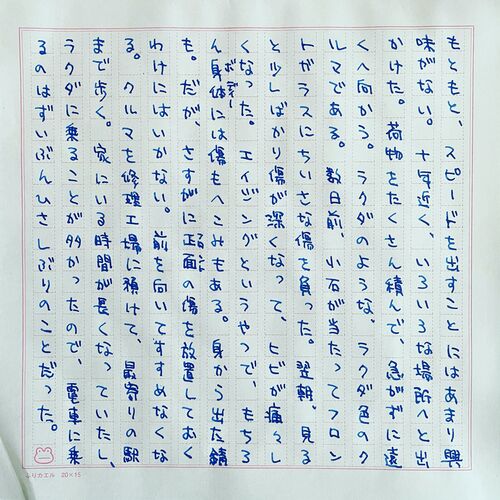 もともと、スピードを出すことにはあまり興
味がない。十年近く、いろいろな場所へと出
かけた。荷物をたくさん積んで、急がずに遠
くへ向かう。ラクダのような、ラクダ色のク
ルマである。数日前、小石が当たってフロン
トガラスにちいさな傷を負った。翌朝、見る
と少しばかり傷が深くなって、ヒビが痛々し
くなった。エイジングというやつで、もちろ
ボディー
ん身体には傷もへこみもある。身から出た錆
も。だが、さすがに正面の傷を放置しておく
わけにはいかない。前を向いてすすめなくな
る。クルマを修理工場に預けて、最寄りの駅
まで歩く。家にいる時間が長くなっていたし、
ラクダに乗ることが多かったので、電車に乗
るのはずいぶんひさしぶりのことだった。
ふりカエル 20×15